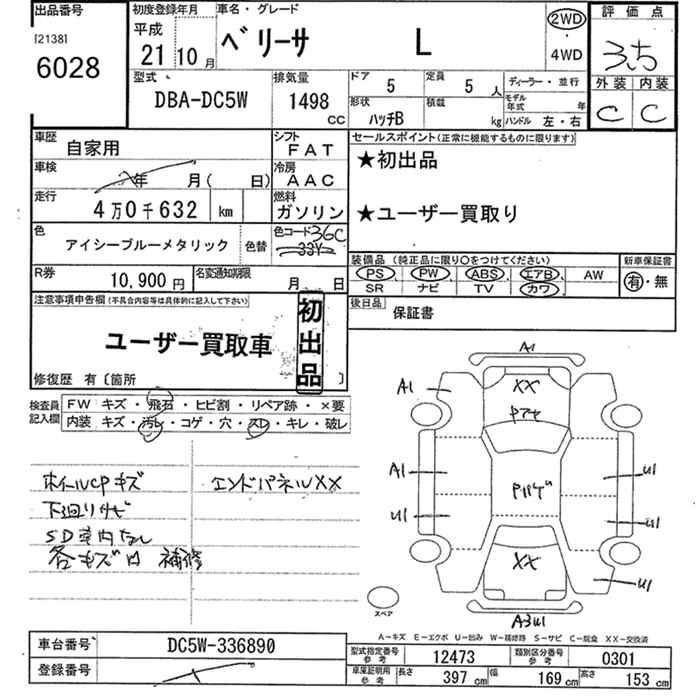 出品番号
[2138]
6028
初度登録年月
平成
21 10月
車名・グレード
ベリーサ L
2WD
・
4WD
評価点
3.5
外装 内装
C C
型式
DBA-DC5W
排気量
1498
CC
ドア
5
定員
5 人
ディーラー・並行
形状
ハッチB
積載
kg
モデル
年式 年
ハンドル 左・右
車歴
自家用
シフト
FAT
車検
年 月( 日)
冷房
AAC
走行
4万0千632 km
燃料
ガソリン
色
アイシーブルーメタリック
色替
色コード 36C
33Y
R券
10,900円
名変通知期限
月 日
セールスポイント(正常に機能するものに限ります)
★初出品
★ユーザー買取り
装備品(純正品に限り○をつけてください)
PS PW ABS エアB AW
SR ナビ TV カワ
新車保証書
有・無
後日品
保証書
注意事項申告欄(不具合内容等は具体的に記入して下さい)
ユーザー買取車
初出品
修復歴 有〔箇所 〕
検査員
記入欄
FW キズ・飛石・ヒビ割・リペア跡・×要
内装 キズ・汚レ・コゲ・穴・スレ・キレ・破レ
ホイールCPキズ
下廻りサビ
SD車内なし
各キズ凹 補修
エンドパネルXX
A1
A1
XX
A1
U1
U1
U1
XX
U1
A3U1
スペア
A-キズ E-エクボ U-凹み W-補修跡 S-サビ C-腐食 XX-交換済
車台番号
DC5W-336890
登録番号
型式指定番号
参考
12473
類別区分番号
参考
0301
車庫証明用
参考
長さ
397 cm
幅
169 cm
高さ
153 cm